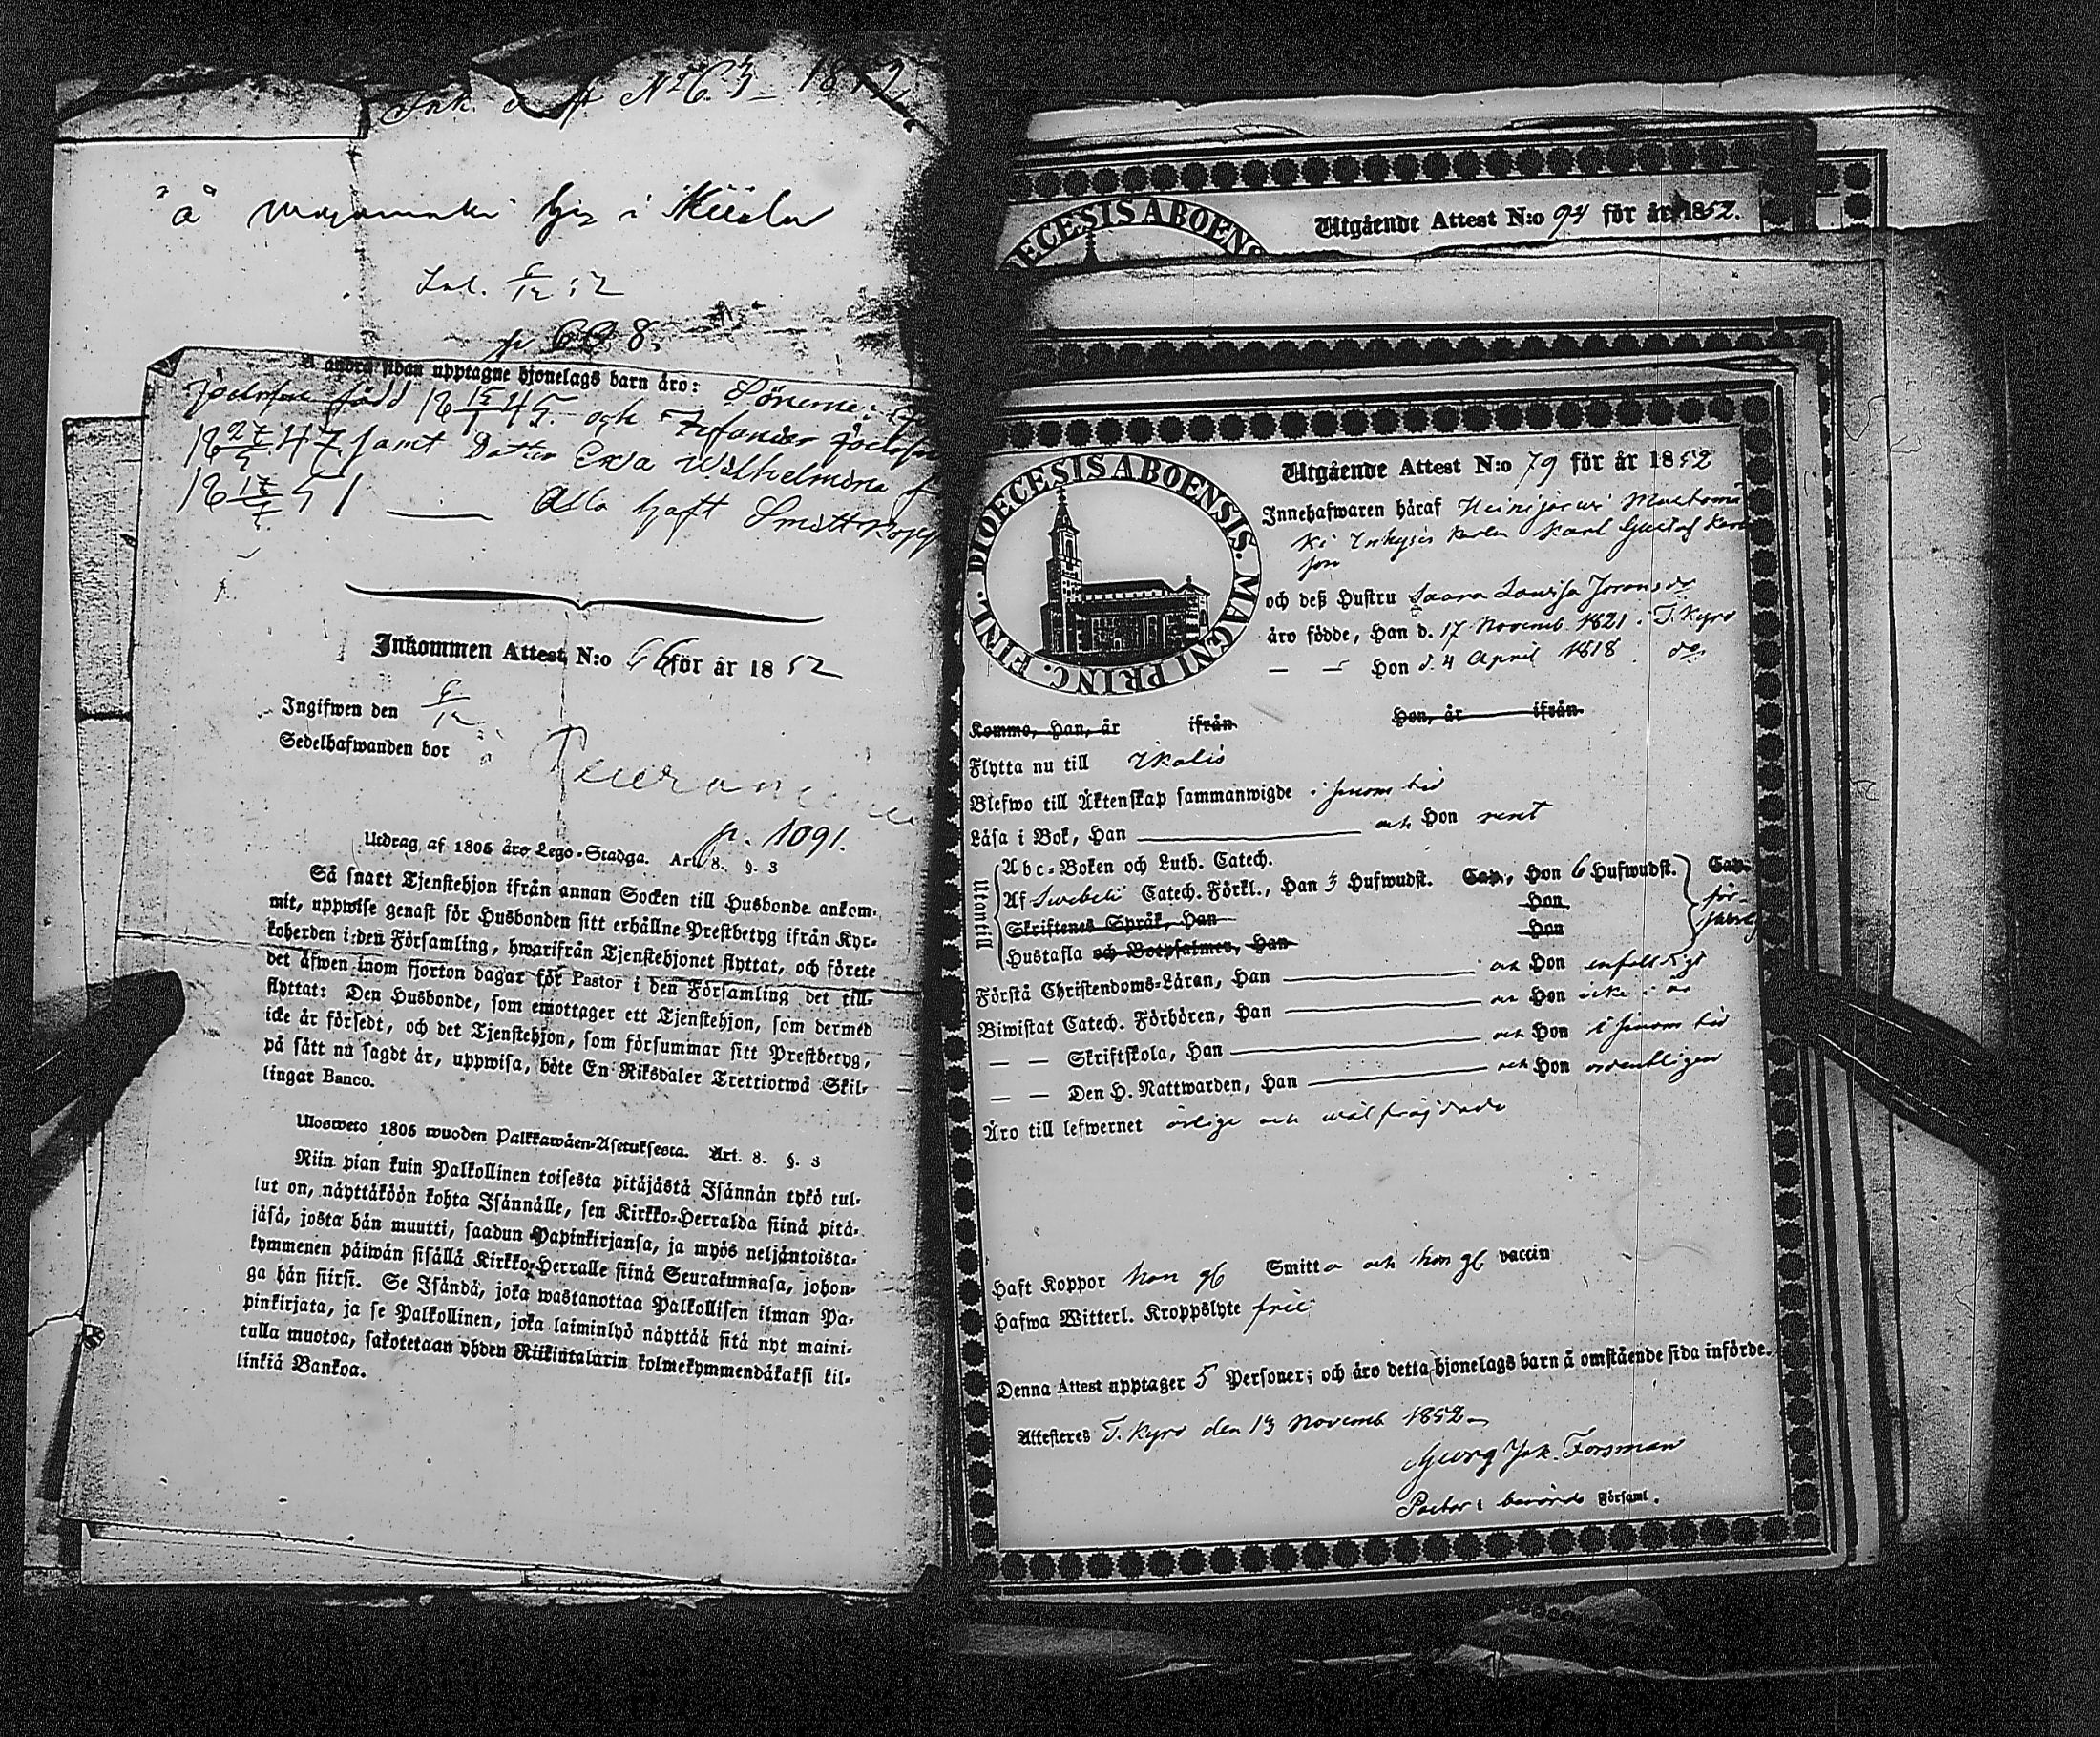 Ink. N:o 63 1852
"å"
Ink. 6/12 52
p. 698.
andra sidan upptagne hjonelags barn äro: Sönerne:
född 18 15/1 45. och Zefanias
18 27/ 47. samt Dottren Eva Wilhelmina
18 17/ 51 — Alla haft Smittkopp
Inkommen Attest N:o 66 för år 1852
Ingifwen den 6/12
Sedelhafwanden bor å
p. 1091.
Utdrag af 1805 års Lego-Stadga. Art. 8. §. 3
Så snart Tjenstehjon ifrån annan Socken till Husbonde ankom-
mit, uppwise genast för Husbonden sitt erhållne Prestbetyg ifrån Kyr-
koherden i den Församling, hwarifrån Tjenstehjonet flyttat, och förete
det äfwen inom fjorton dagar för Pastor i den Församling det till-
flyttat: Den Husbonde, som emottager ett Tjenstehjon, som dermed
icke är försedt, och det Tjenstehjon, som försummar sitt Prestbetyg,
på sätt nu sagdt är, uppwisa, böte En Riksdaler Trettiotwå Skil-
lingar Banco.
Ulosweto 1805 wuoden Palkkawäen-Asetuksesta. Art. 8. §. 3
Niin pian kuin Palkollinen toisesta pitäjästä Isännän tykö tul-
lut on, näyttäköön kohta Isännälle, sen Kirkko-Herralda siinä pitä-
jäsä, josta hän muutti, saadun Papinkirjansa, ja myös neljäntoista-
kymmenen päiwän sisällä Kirkko-Herralle siinä Seurakunnasa, johon-
ga hän siirsi. Se Isändä, joka wastanottaa Palkollisen ilman Pa-
pinkirjata, ja se Palkollinen, joka laiminlyö näyttää sitä nyt maini-
tulla muotoa, sakotetaan yhden Riikintalarin kolmekymmendäkaksi kil-
linkiä Bankoa.
DIOECESIS ABOENS
Utgående Attest N:o 94 för år 1852.
DIOECESIS ABOENSIS. MAGNI PRINC. FINL.
Utgående Attest N:o 79 för år 1852
Innehafwaren häraf Heinijärwi
Karl Gustaf
son
och deß Hustru Saara Lowisa Joransdr
äro födde, Han d. 17 Novemb. 1821. T. Kyro
— — Hon d. 4 April 1818. do
Komme, Han, år ifrån Hon, år ifrån
Flytta nu till Ikalis
Blefwo till Äktenskap sammanwigde i sinom tid
Läsa i Bok, Han och Hon rent
Utantill
Abc-Boken och Luth. Catech.
Af Swebelii Catech. Förkl., Han 3 Hufwudst. Cap., Hon 6 Hufwudst. Cap.
Skriftenes Språk, Han Hon
Hustafla och Botpsalmer, Han Hon
Förstå Christendoms-Läran, Han och Hon enfaldigt
Biwistat Catech. Förhören, Han och Hon icke i år
— — Skriftskola, Han och Hon i sinom tid
— — Den H. Nattwarden, Han och Hon ordentligen
Äro till lefwernet ärlige och wälfrägdade
Haft Koppor Smitto och vaccin
Hafwa Witterl. Kroppslyte frie
Denna Attest upptager 5 Personer; och äro detta hjonelags barn å omstående sida införde.
Attesteres T. Kyro den 13 Novemb 1852
Georg Jak. Forsman
Pastor i berörde Församl.